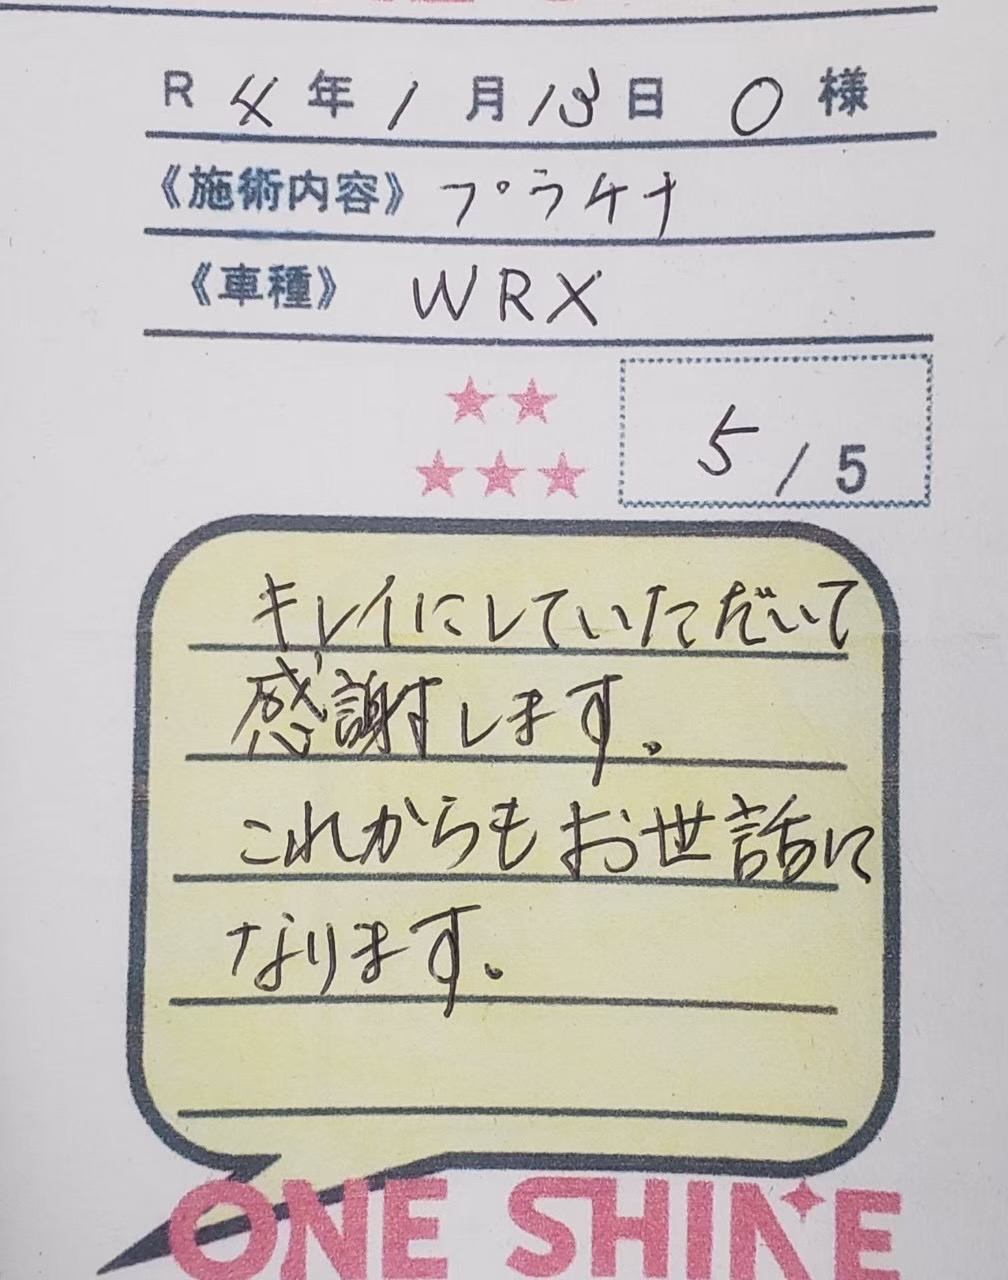 R 4 年 1 月 13 日 O 様
《施術内容》 プラケナ
《車種》 WRX
5 / 5
キレイにしていただいて
感謝します。
これからもお世話に
なります。
ONE SHINE